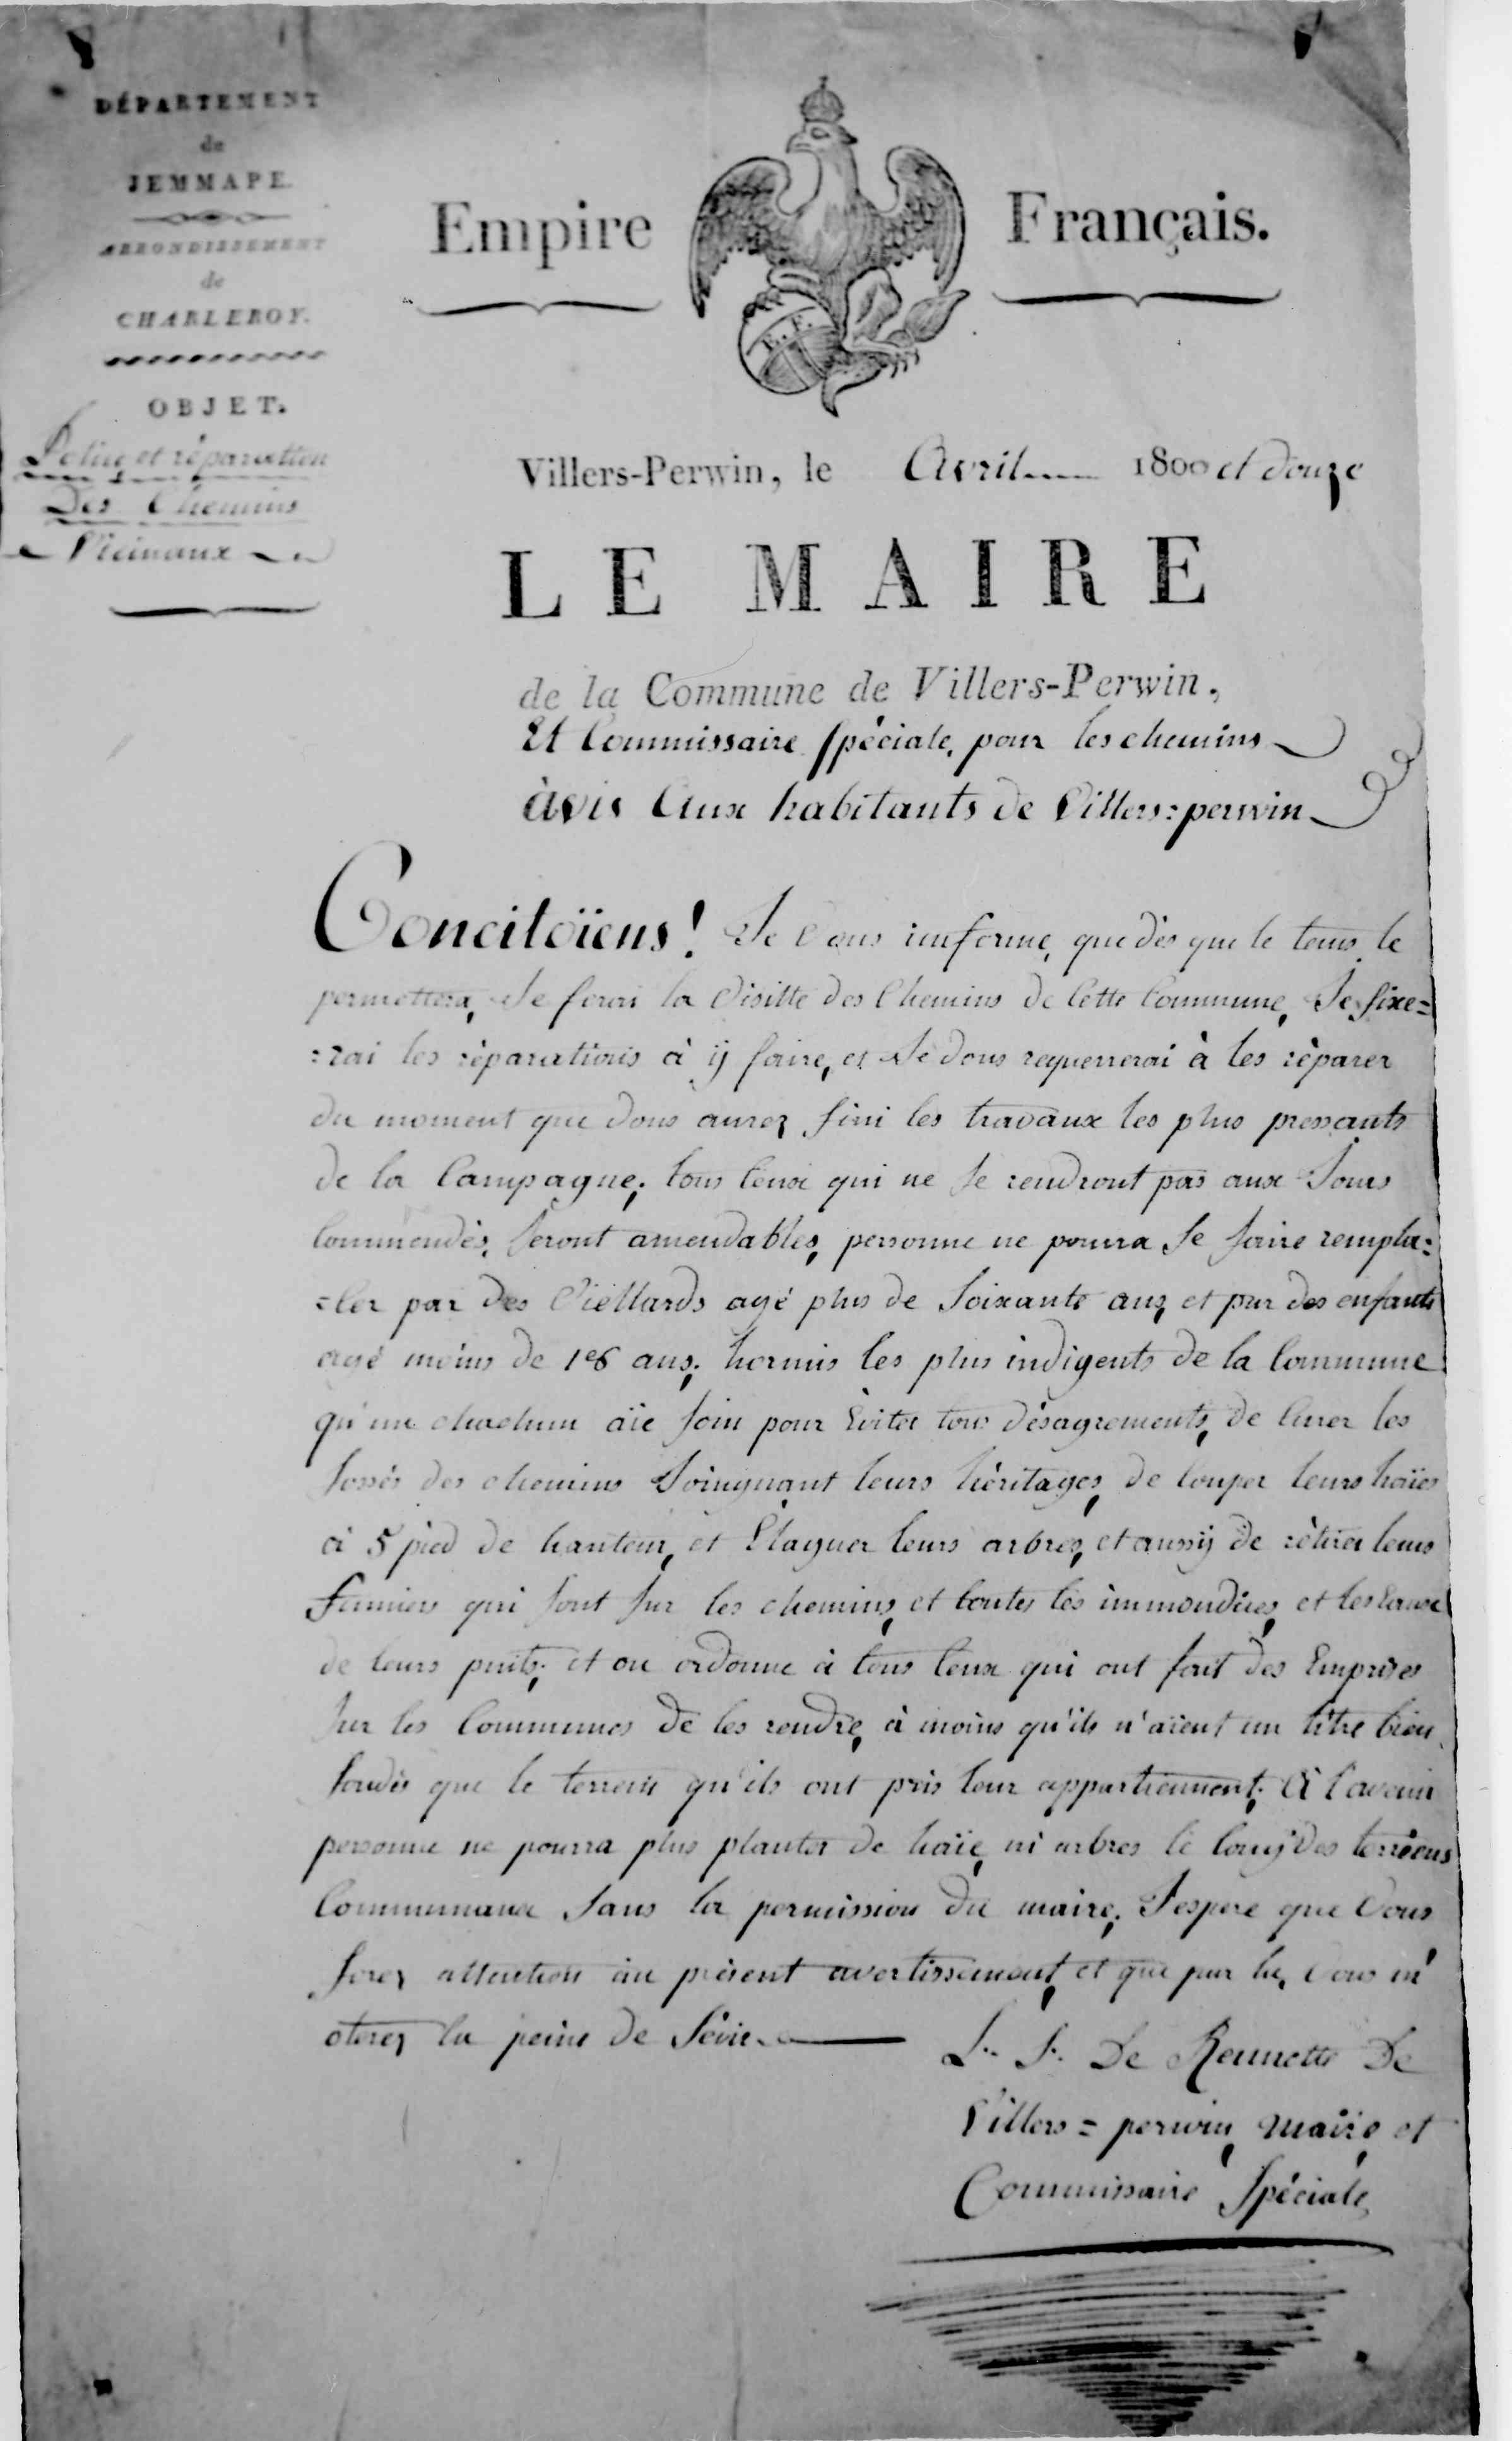 DÉPARTEMENT
de
JEMMAPE.
ARRONDISSEMENT
de
CHARLEROY.
OBJET.
Police et réparation
Des Chemins
Vicinaux
Empire Français.
E. F.
Villers-Perwin, le Avril 1800 et douze
LE MAIRE
de la Commune de Villers-Perwin,
Et Commissaire Spéciale, pour les chemins
àvis Aux habitants de Villers=perwin
Concitoïens! Je Vous imforme, que dès que le tems le
permettera, Je ferai la Visitte des Chemins de Cette Commune, Je fixe=
=rai les rèparations à ÿ faire, et Je Vous requerrerai à les rèparer
du moment que Vous aurez fini les travaux les plus pressants
de la Campagne; tous Ceux qui ne Se rendront pas aux Jours
Commendés, Seront amendables, personne ne pourra Se faire rempla=
=Cer par des Viellards agé plus de Soixante ans, et par des enfants
agé moins de 1e6 ans; hormis les plus indigents de la Commune
qu'un chachun aïe Soin pour Eviter tous désagrements, de Curer les
fossés des chemins Joingnant leurs héritages, de Couper leurs haïes
à 5 pied de hauteur, et Elaguer leurs arbres, et aussÿ de rètirer leurs
fumiers qui Sont Sur les chemins, et toutes les immondices, et les Eaux
de leurs puits; et on ordonne à tous Ceux qui ont fait des Emprises
Sur les Communes de les rendre, à moins qu'ils n'aïent un titre bien
fondés que le terrein qu'ils ont pris leur appartiennent; A l'avenir
personne ne pourra plus planter de haïe, ni arbres le long des terreins
Communaux Sans la permission du maire; J'espere que Vous
ferez attention au present avertissement, et que par la, Vous m'
oterez la peine de Sévir.
L. F. De Rennette De
Villers=perwin, Maire, et
Commissaire Spéciale,